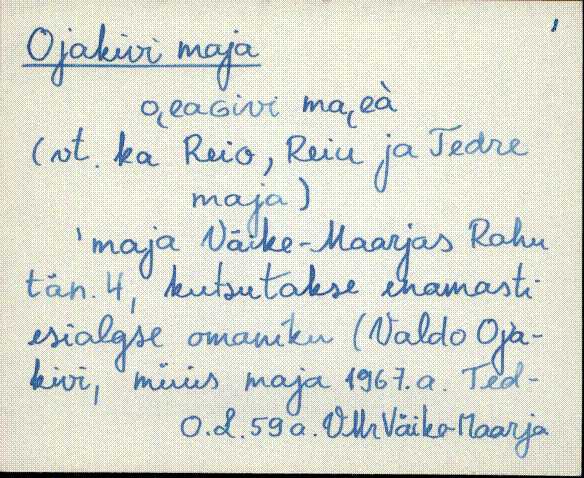 Ojakivi maja
o̯eaɢivi ma̯eà
(vt. ka Reio, Reiu ja Tedre
maja)
'maja Väike-Maarjas Rahu
tän. 4, kutsutakse enamasti
esialgse omaniku (Valdo Oja-
kivi, müüs maja 1967. a. Ted-
O. L. 59 a. VMr Väike-Maarja